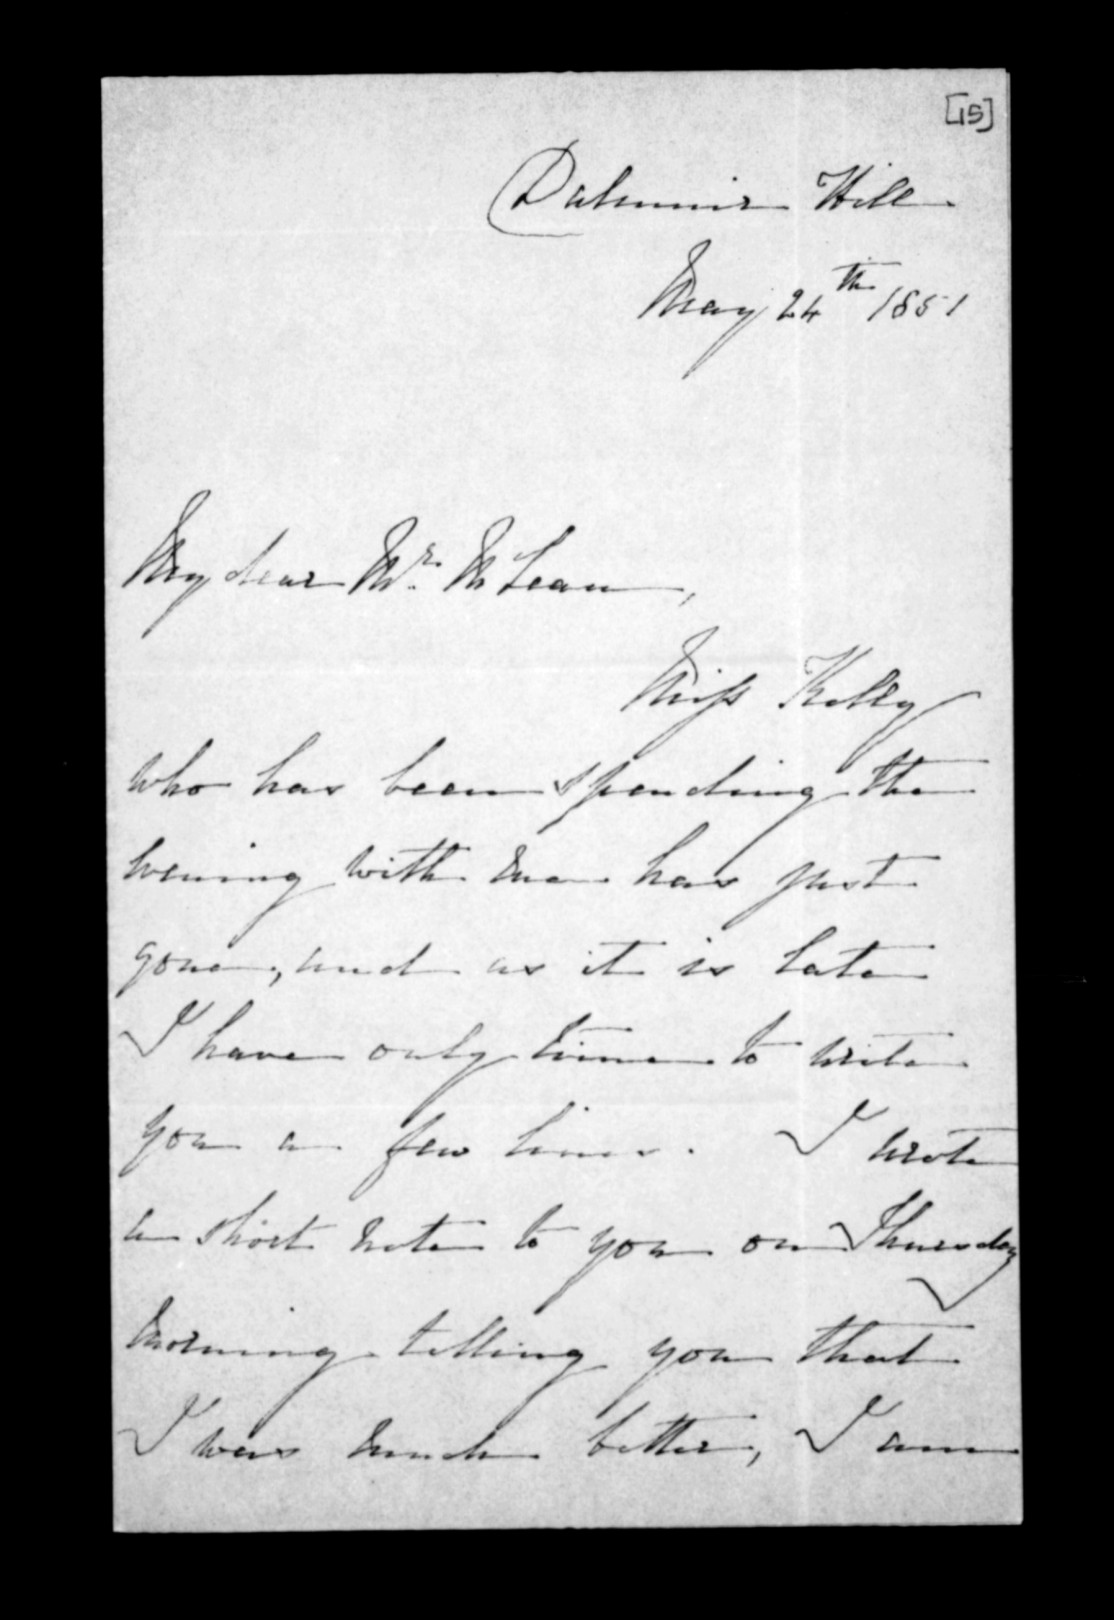 [15]
Dalmuir Hill
May 24th 1851
My dear Mr. McLean,
Miss Kelly
who has been spending the
evening with me has just
gone, and as it is late
I have only time to write
you a few lines. I wrote
a short note to you on Thursday
morning telling you that
I was much better, I am